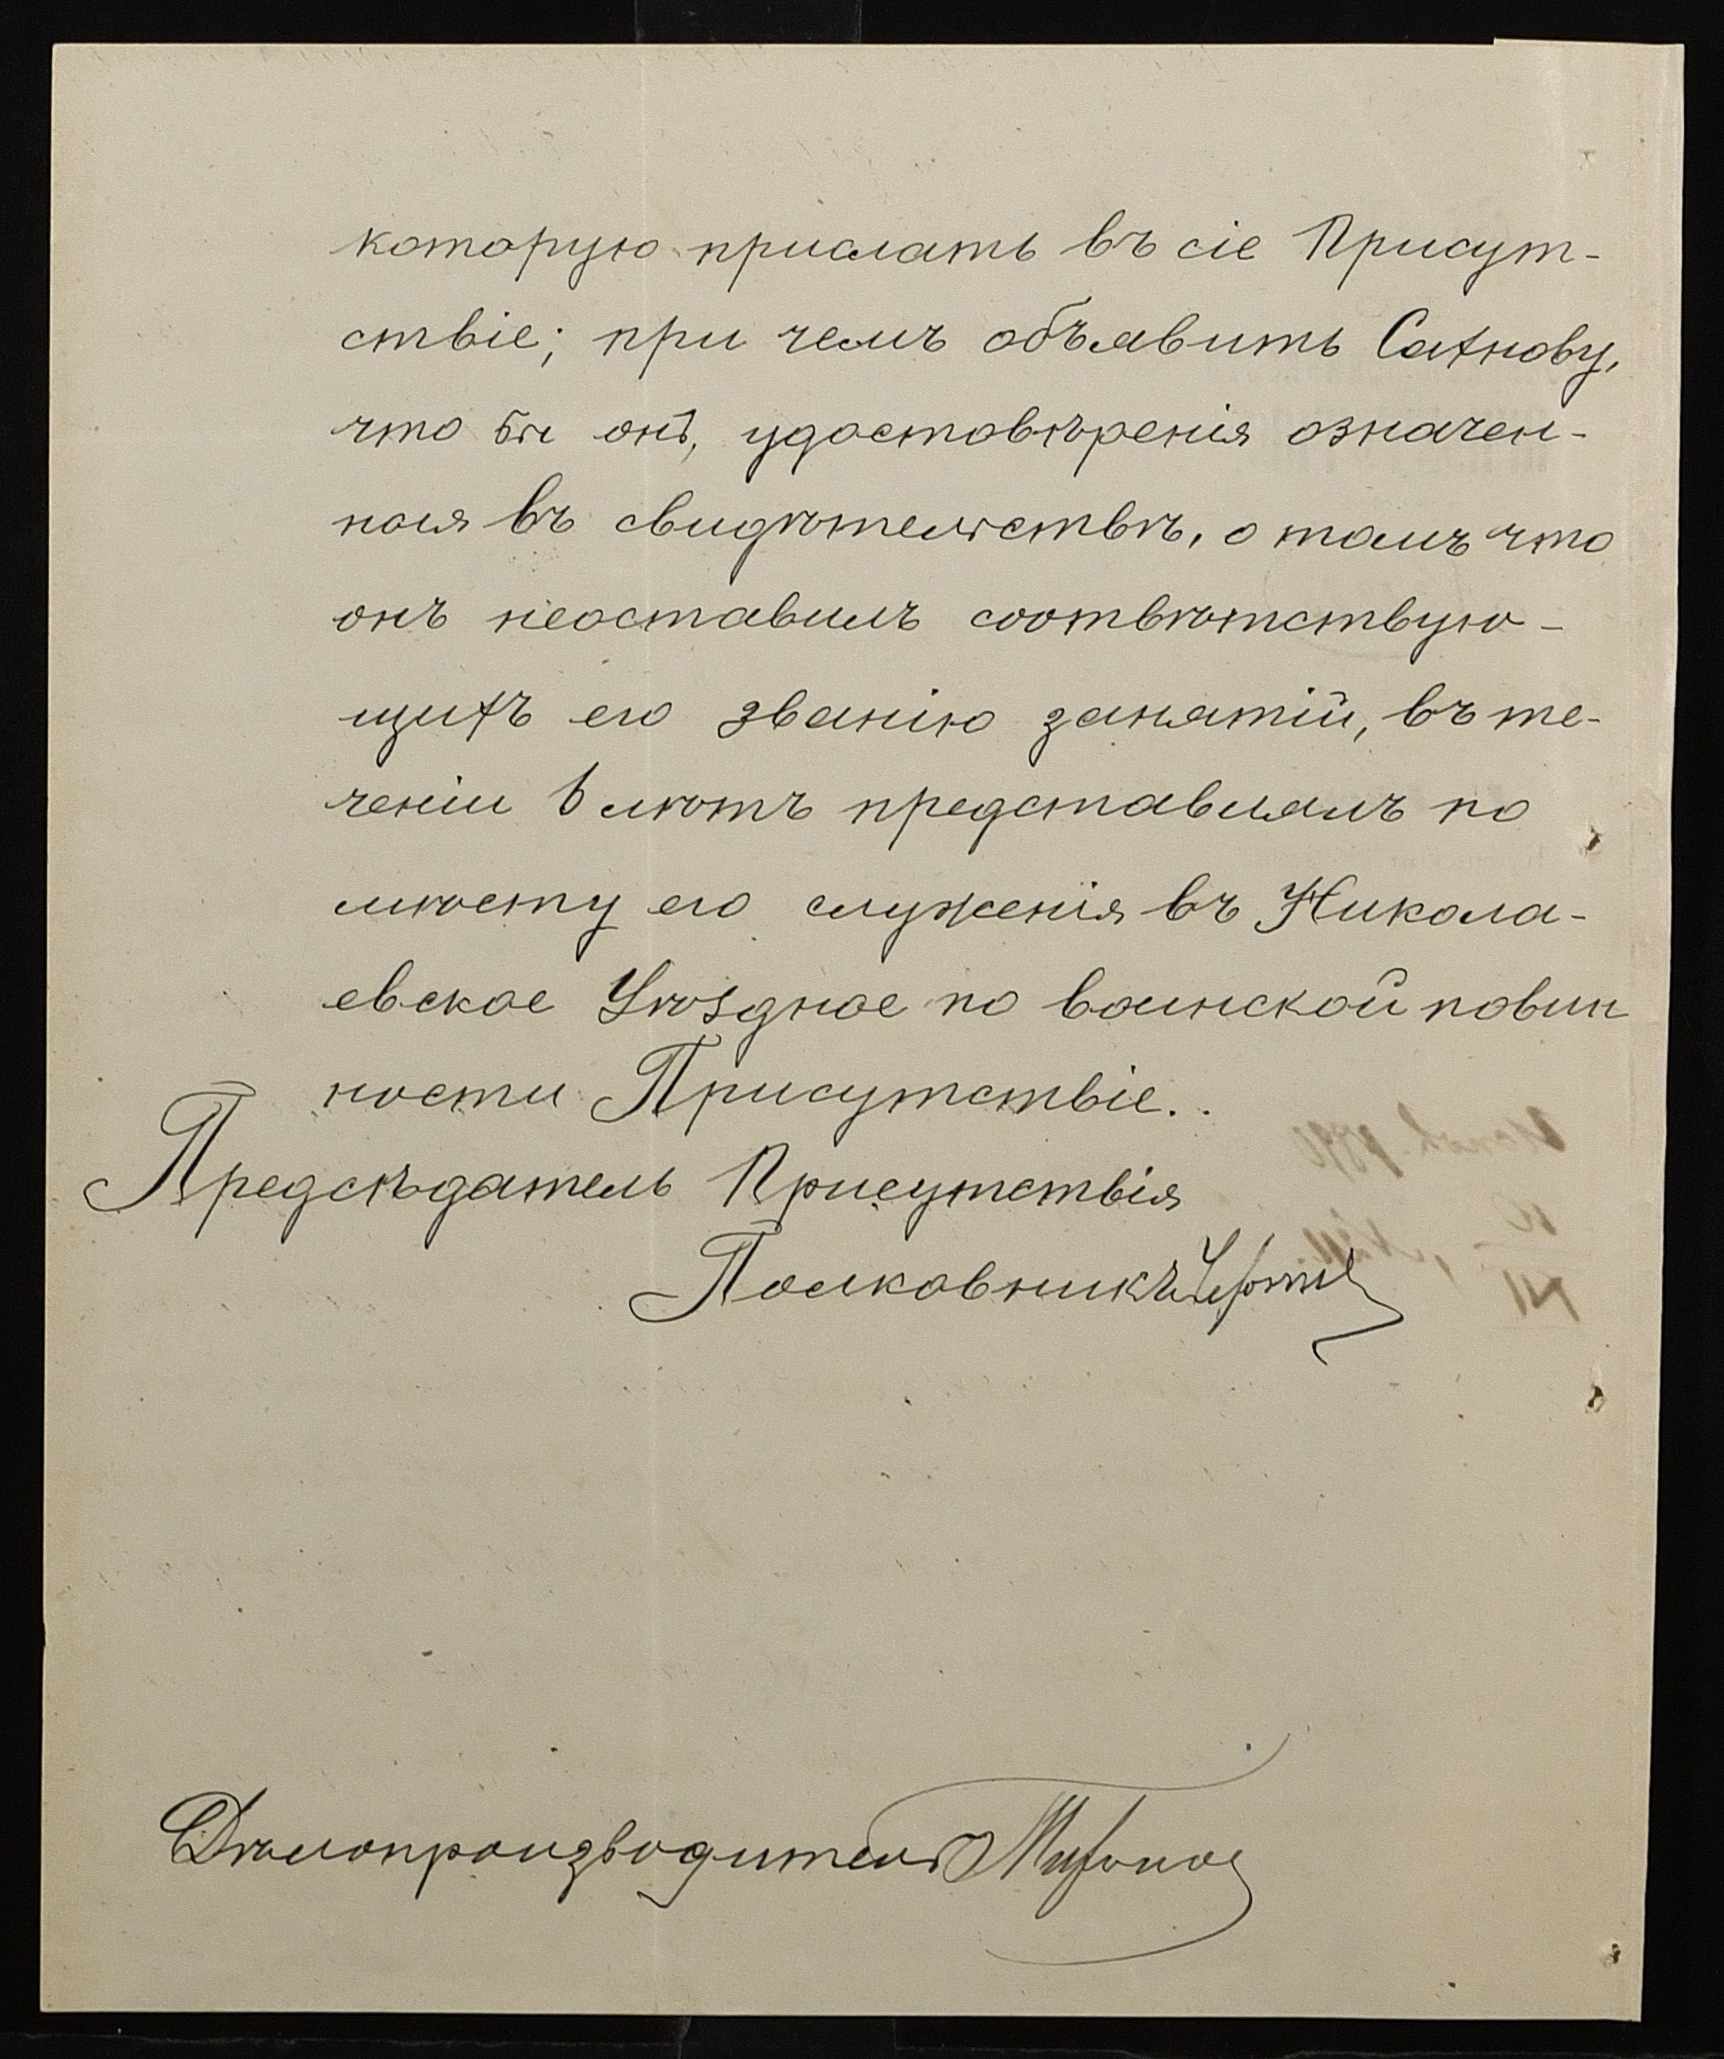 которую прислать въ сіе Присут-
ствіе; при чемъ объявить Сахнову,
что бы онъ, удостовѣренія означен-
ныя въ свидѣтельствѣ, о томъ что
онъ неоставилъ соотвѣтствую-
щихъ его званію занятій, въ те-
ченіи 6 лѣтъ представлялъ по
мѣсту его служенія въ Никола-
евское Уѣздное по воинской повин
ности Присутствіе.
Предсѣдатель Присутствія
Полковникъ
Дѣлопроизводитель Миронов